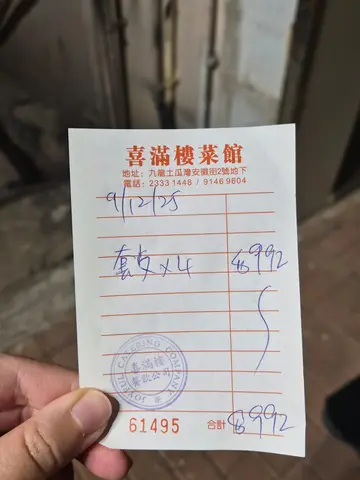 喜滿樓菜館
地址：九龍土瓜灣安徽街2號地下
電話：2333 1448 / 9146 9604
9/12/25
套餐 x 4 $992
JOYFUL CATERING COMPANY
喜滿樓
餐飲公司
61495 合計 $992